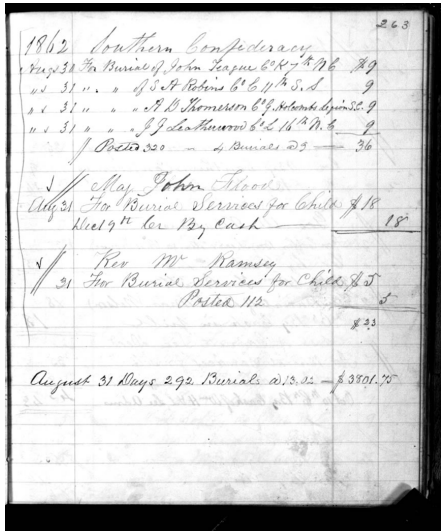 263
1862 Southern Confideracy
Aug 30 For Burial of John Teague Co K 7th N C $9
" " 31 " " " of S A Robins Co C 11th S. S 9
" " 31 " " " A D Thomerson Co G. Holcombs Legion S.C. 9
" " 31 " " " J J Leatherwood Co L 16th N. C 9
Posted 320 4 Burials @ 9 36
Maj John Flood
Aug 31 For Burial Services for Child $18
Dec 19th Cr By Cash 18
Rev Mr Ramsey
31 For Burial Services for Child $5
Posted 112 5
$23
August 31 Days 292 Burials @ 13,02 $3801.75